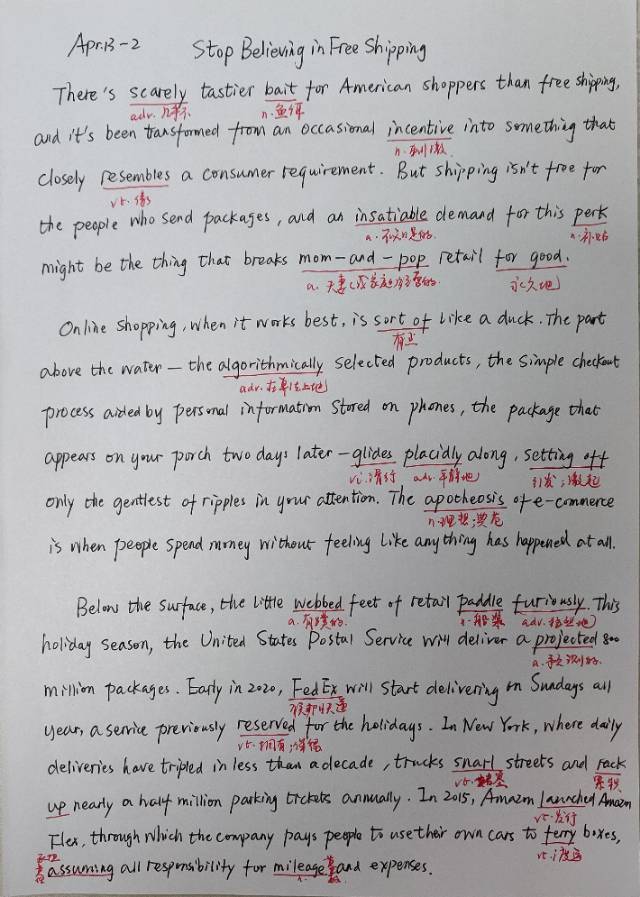 Apr.13-2 Stop Believing in Free Shipping
There's scarely tastier bait for American shoppers than free shipping,
adv. 几乎不 n. 鱼饵
and it's been transformed from an occasional incentive into something that
n. 刺激
closely resembles a consumer requirement. But shipping isn't free for
vt. 像
the people who send packages, and an insatiable demand for this perk
a. 不知足的 n. 补贴
might be the thing that breaks mom-and-pop retail for good.
a. 夫妻(或家庭)经营的 永久地
Online shopping, when it works best, is sort of like a duck. The part
有点
above the water — the algorithmically selected products, the simple checkout
adv. 在算法上地
process aided by personal information stored on phones, the package that
appears on your porch two days later — glides placidly along, setting off
vi. 滑行 adv. 平静地 引发;激起
only the gentlest of ripples in your attention. The apotheosis of e-commerce
n. 理想;典范
is when people spend money without feeling like anything has happened at all.
Below the surface, the little webbed feet of retail paddle furiously. This
a. 有蹼的 adv.
holiday season, the United States Postal Service will deliver a projected 800
a. 预测的
million packages. Early in 2020, FedEx will start delivering on Sundays all
联邦快递
year, a service previously reserved for the holidays. In New York, where daily
vt. 拥有;保留
deliveries have tripled in less than a decade, trucks snarl streets and rack
vt. 堵塞 累积
up nearly a half million parking tickets annually. In 2015, Amazon launched Amazon
vt. 发行
Flex, through which the company pays people to use their own cars to ferry boxes,
vt. 渡运
assuming all responsibility for mileage and expenses.